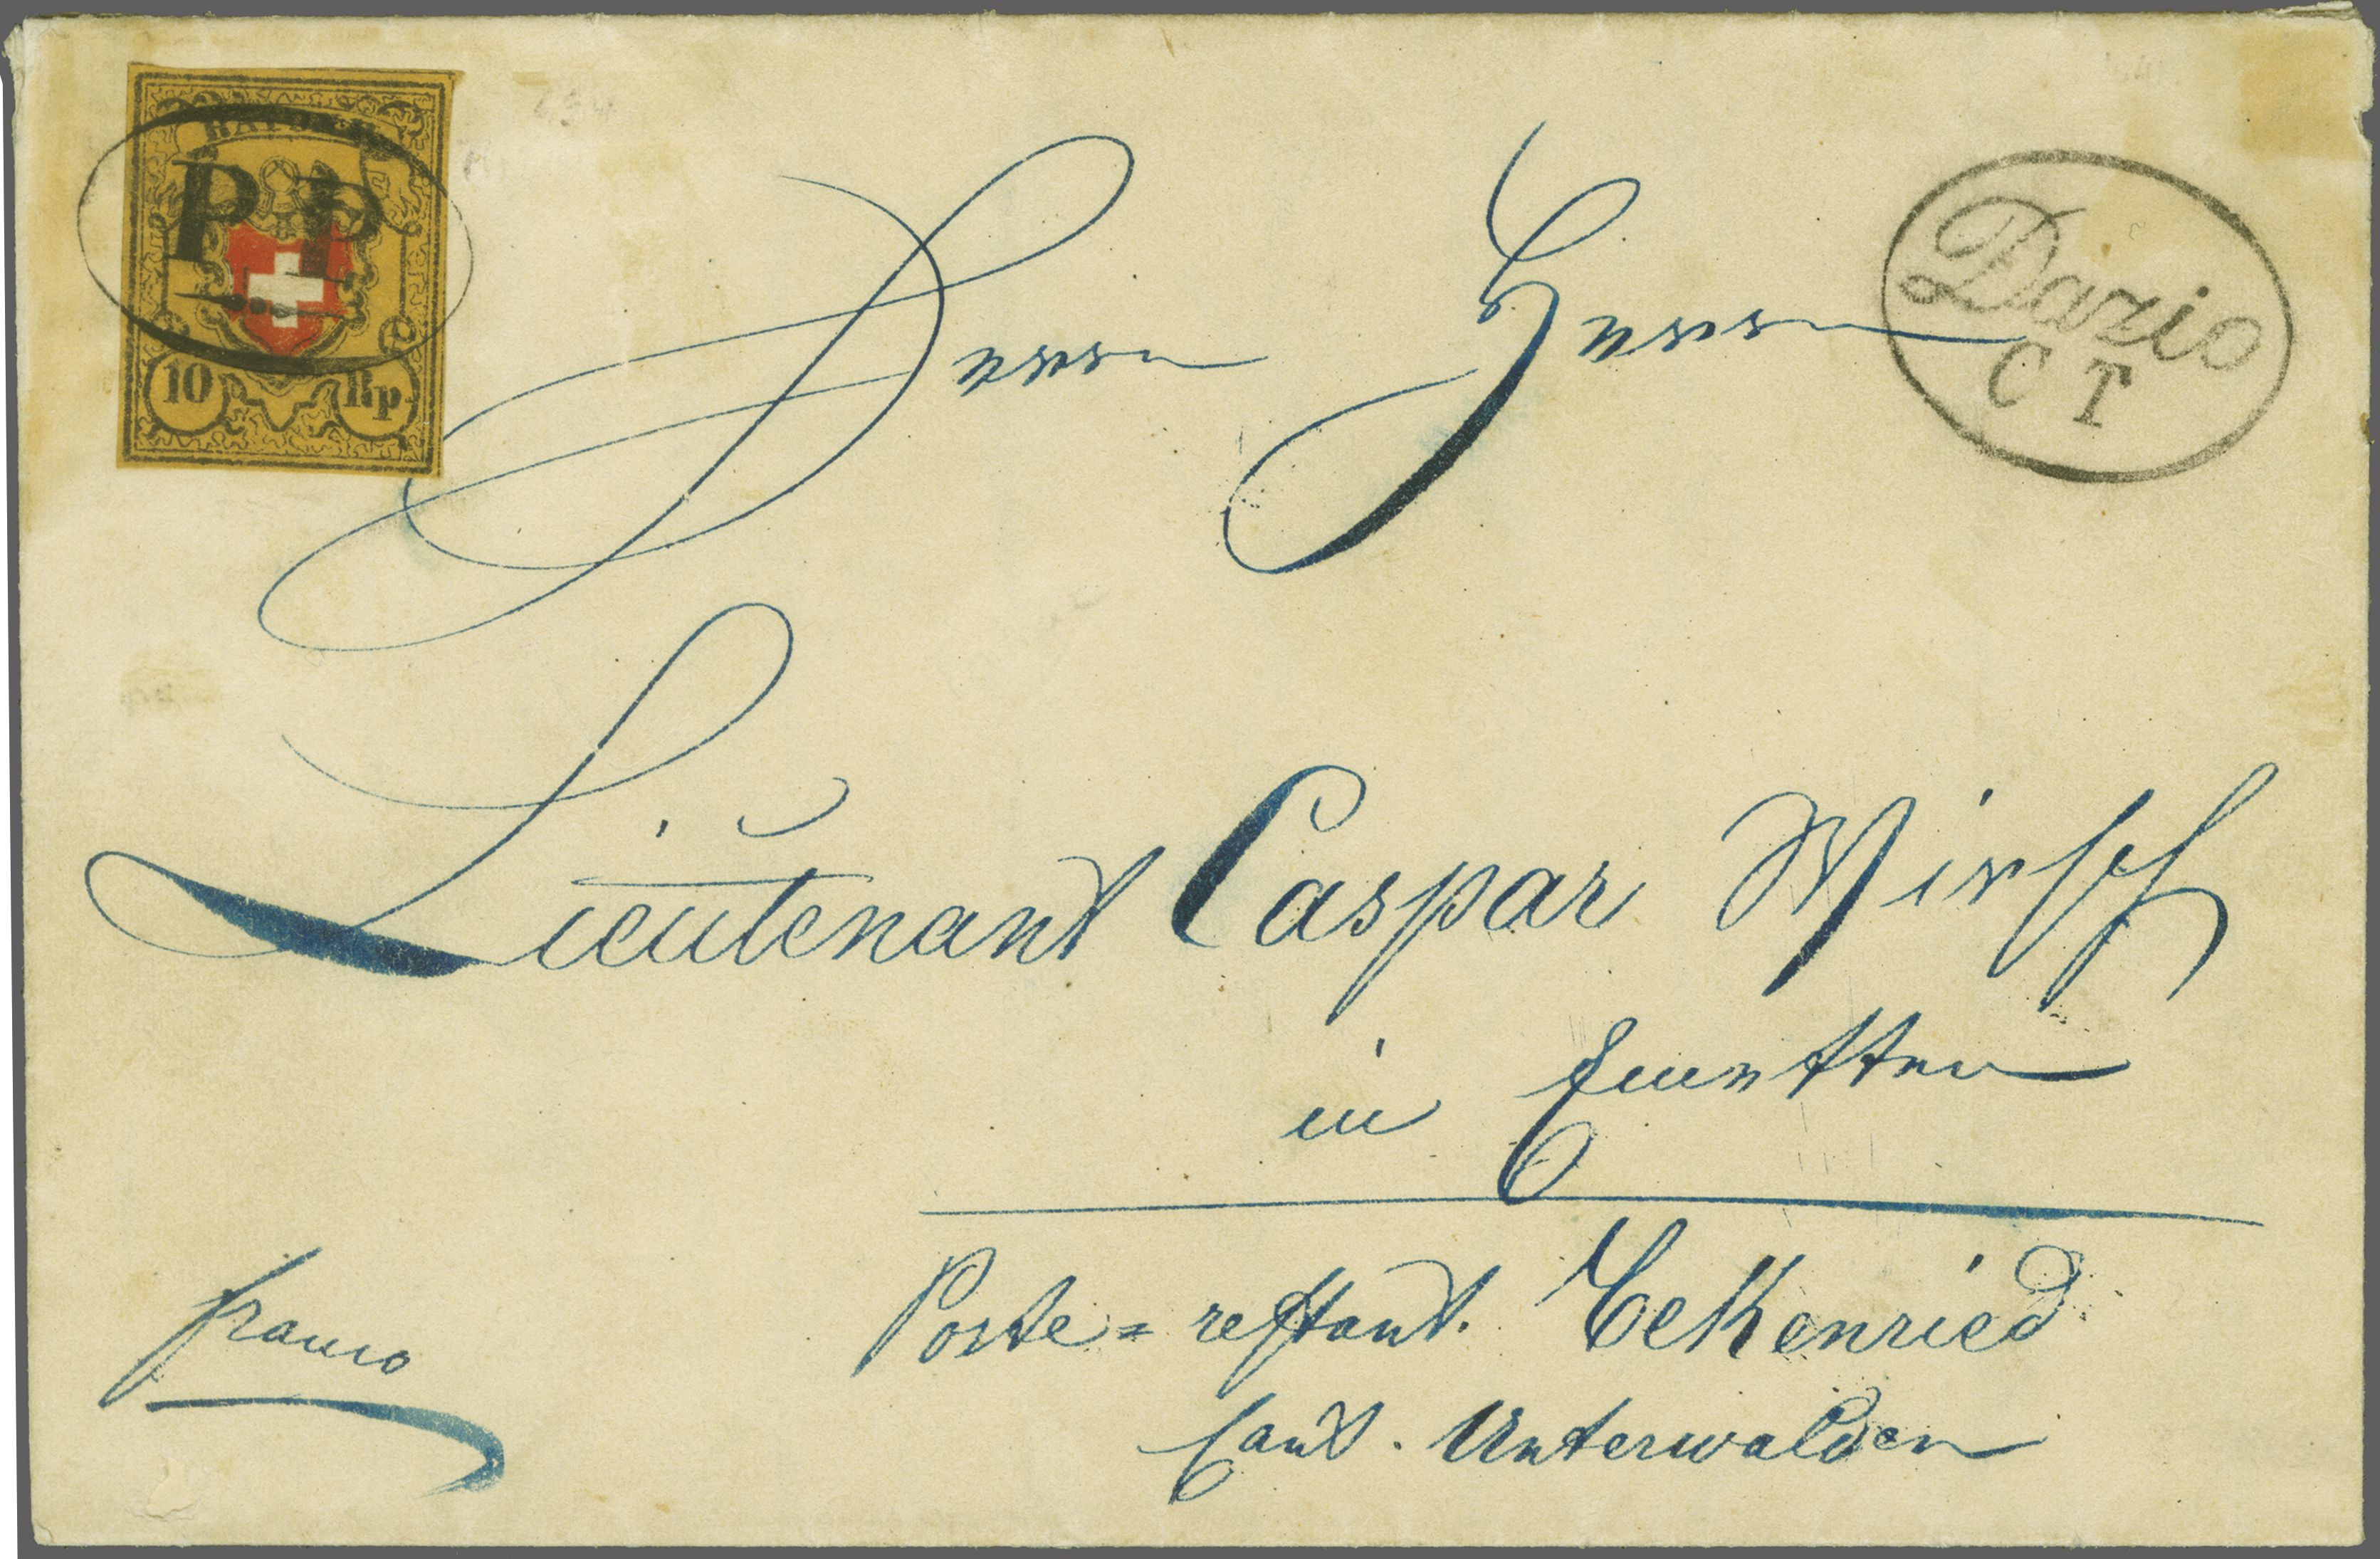 RAYON II
P.P.
10 Rp.
Dazio
C T
Herrn Herrn
Lieutenant Caspar Wirsch
in Emetten
Poste=restant. Bekenried
Cant. Unterwalden
franco